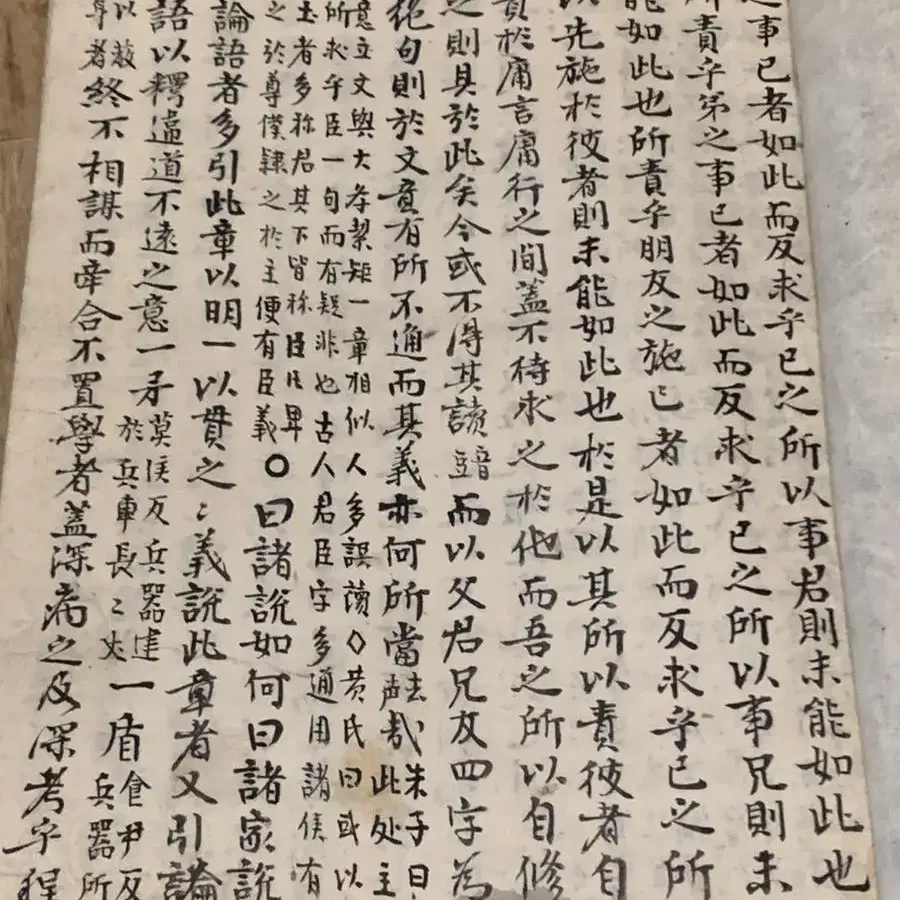 之事己者如此而反求乎己之所以事君則未能如此也
所責乎弟之事己者如此而反求乎己之所以事兄則未
能如此也所責乎朋友之施己者如此而反求乎己之所
以先施於彼者則未能如此也於是以其所以責彼者自
責於庸言庸行之間蓋不待求之於他而吾之所以自修
之則具於此矣今或不得其讀音豆而以父君兄友四字為
絶句則於文意有所不通而其義亦何所當去声哉朱子曰此处主
意立文與大孝絜矩一章相似人多誤讀◇黄氏曰或以
所求乎臣一句而有疑非也古人君臣字多通用諸侯有
土者多称君其下皆称臣臣卑
之於尊僕隷之於主便有臣義○曰諸說如何曰諸家說
論語者多引此章以明一以貫之〻義說此章者又引論
語以釋違道不遠之意一矛莫侯反兵器建於兵車長二丈一盾食尹反兵器所
以蔽身者終不相謀而牽合不置學者蓋深病之及深考乎程